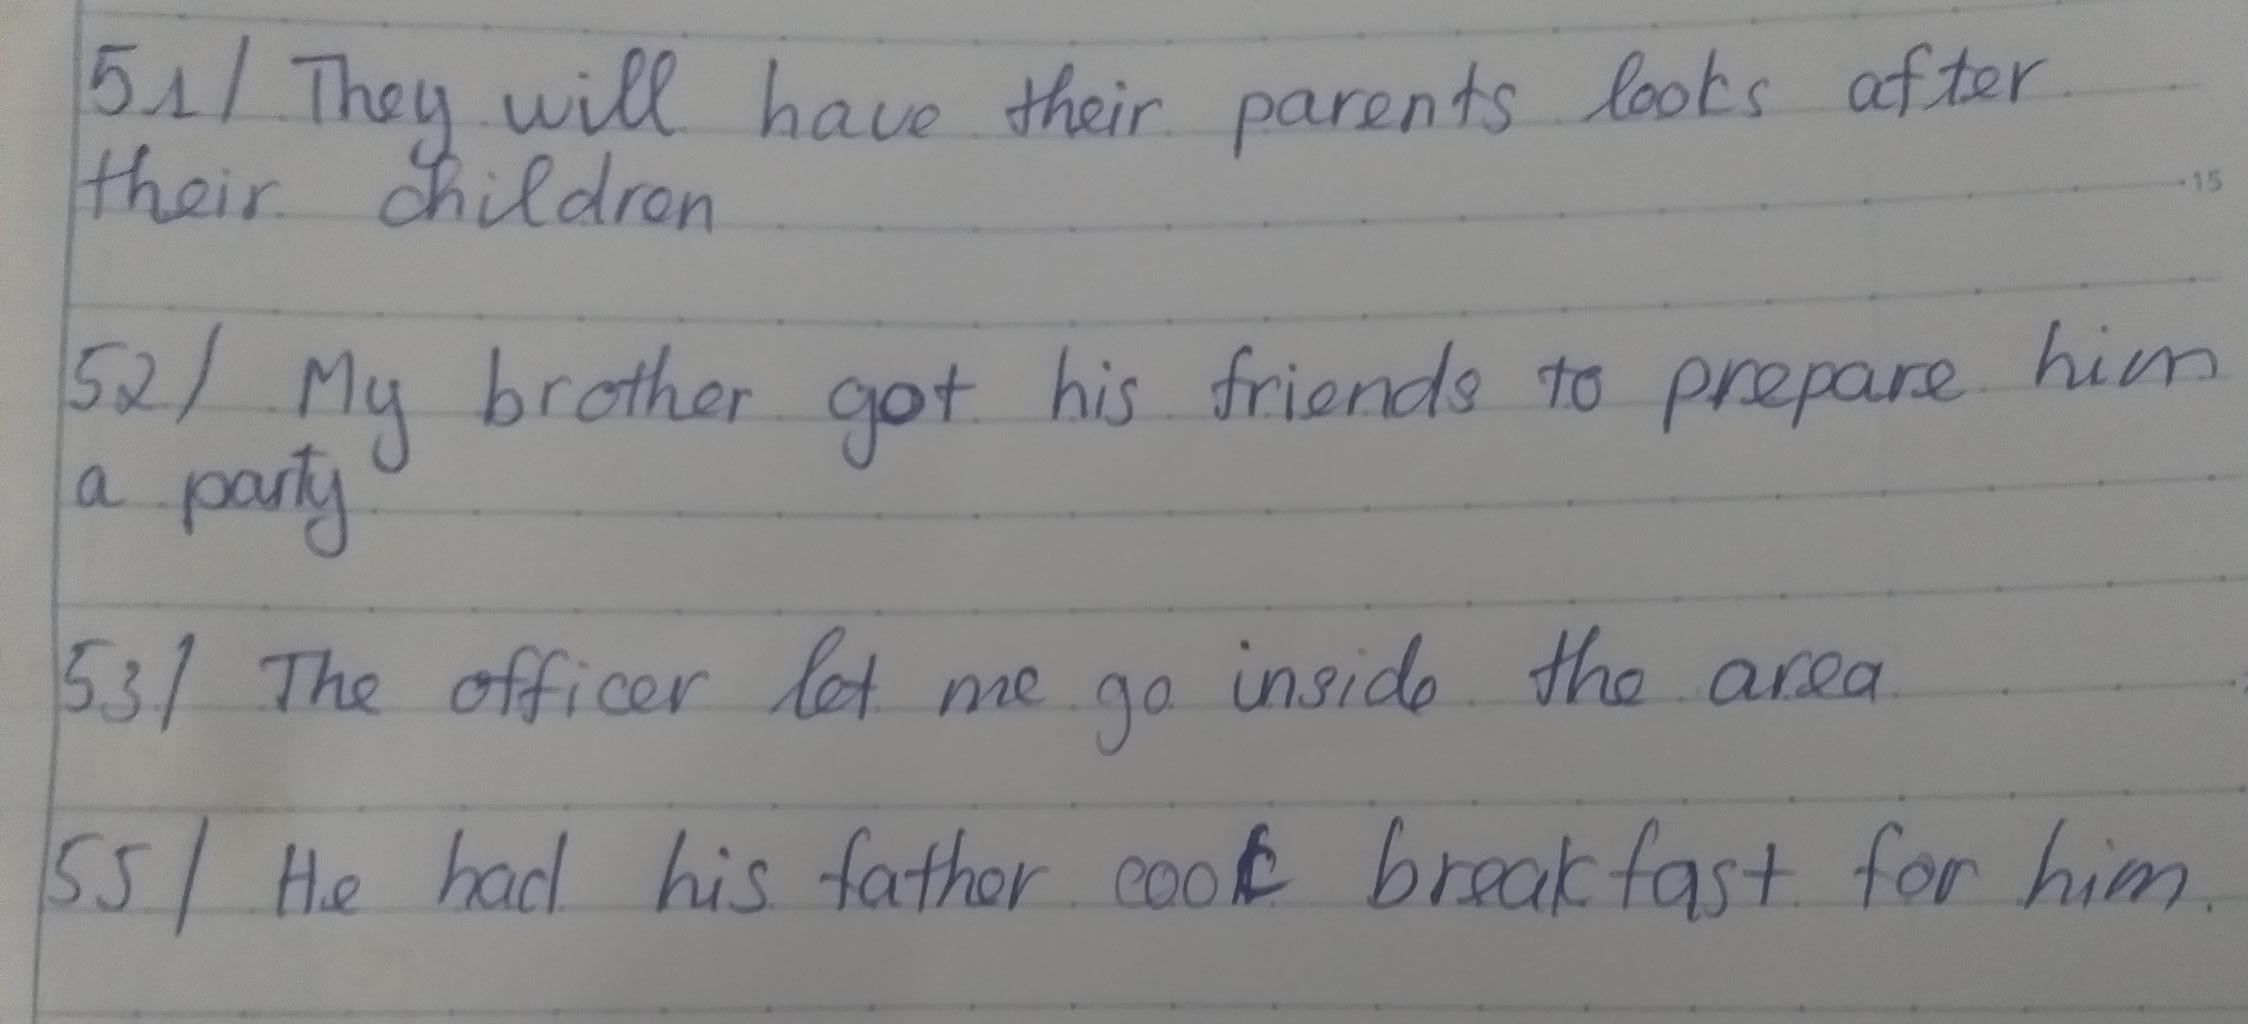 51/ They will have their parents looks after
their children
15
52/ My brother got his friends to prepare him
a party
53/ The officer let me go inside the area
55/ He had his father cook breakfast for him.